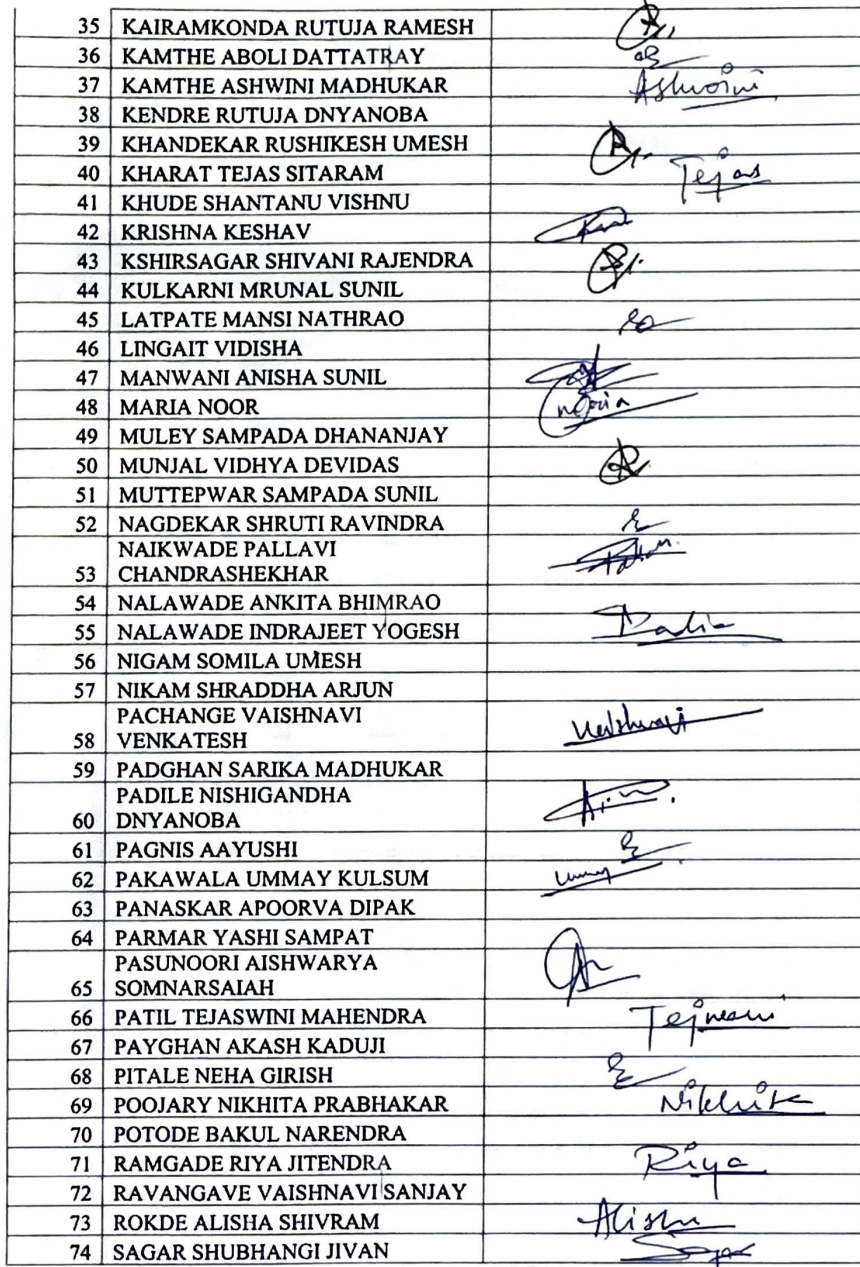 35 KAIRAMKONDA RUTUJA RAMESH
36 KAMTHE ABOLI DATTATRAY
37 KAMTHE ASHWINI MADHUKAR Ashwini
38 KENDRE RUTUJA DNYANOBA
39 KHANDEKAR RUSHIKESH UMESH
40 KHARAT TEJAS SITARAM Tejas
41 KHUDE SHANTANU VISHNU
42 KRISHNA KESHAV
43 KSHIRSAGAR SHIVANI RAJENDRA
44 KULKARNI MRUNAL SUNIL
45 LATPATE MANSI NATHRAO
46 LINGAIT VIDISHA
47 MANWANI ANISHA SUNIL
48 MARIA NOOR Maria
49 MULEY SAMPADA DHANANJAY
50 MUNJAL VIDHYA DEVIDAS
51 MUTTEPWAR SAMPADA SUNIL
52 NAGDEKAR SHRUTI RAVINDRA
NAIKWADE PALLAVI
53 CHANDRASHEKHAR
54 NALAWADE ANKITA BHIMRAO
55 NALAWADE INDRAJEET YOGESH
56 NIGAM SOMILA UMESH
57 NIKAM SHRADDHA ARJUN
PACHANGE VAISHNAVI
58 VENKATESH
59 PADGHAN SARIKA MADHUKAR
PADILE NISHIGANDHA
60 DNYANOBA
61 PAGNIS AAYUSHI
62 PAKAWALA UMMAY KULSUM
63 PANASKAR APOORVA DIPAK
64 PARMAR YASHI SAMPAT
PASUNOORI AISHWARYA
65 SOMNARSAIAH
66 PATIL TEJASWINI MAHENDRA
67 PAYGHAN AKASH KADUJI
68 PITALE NEHA GIRISH
69 POOJARY NIKHITA PRABHAKAR Nikhita
70 POTODE BAKUL NARENDRA
71 RAMGADE RIYA JITENDRA Riya
72 RAVANGAVE VAISHNAVI SANJAY
73 ROKDE ALISHA SHIVRAM Alisha
74 SAGAR SHUBHANGI JIVAN